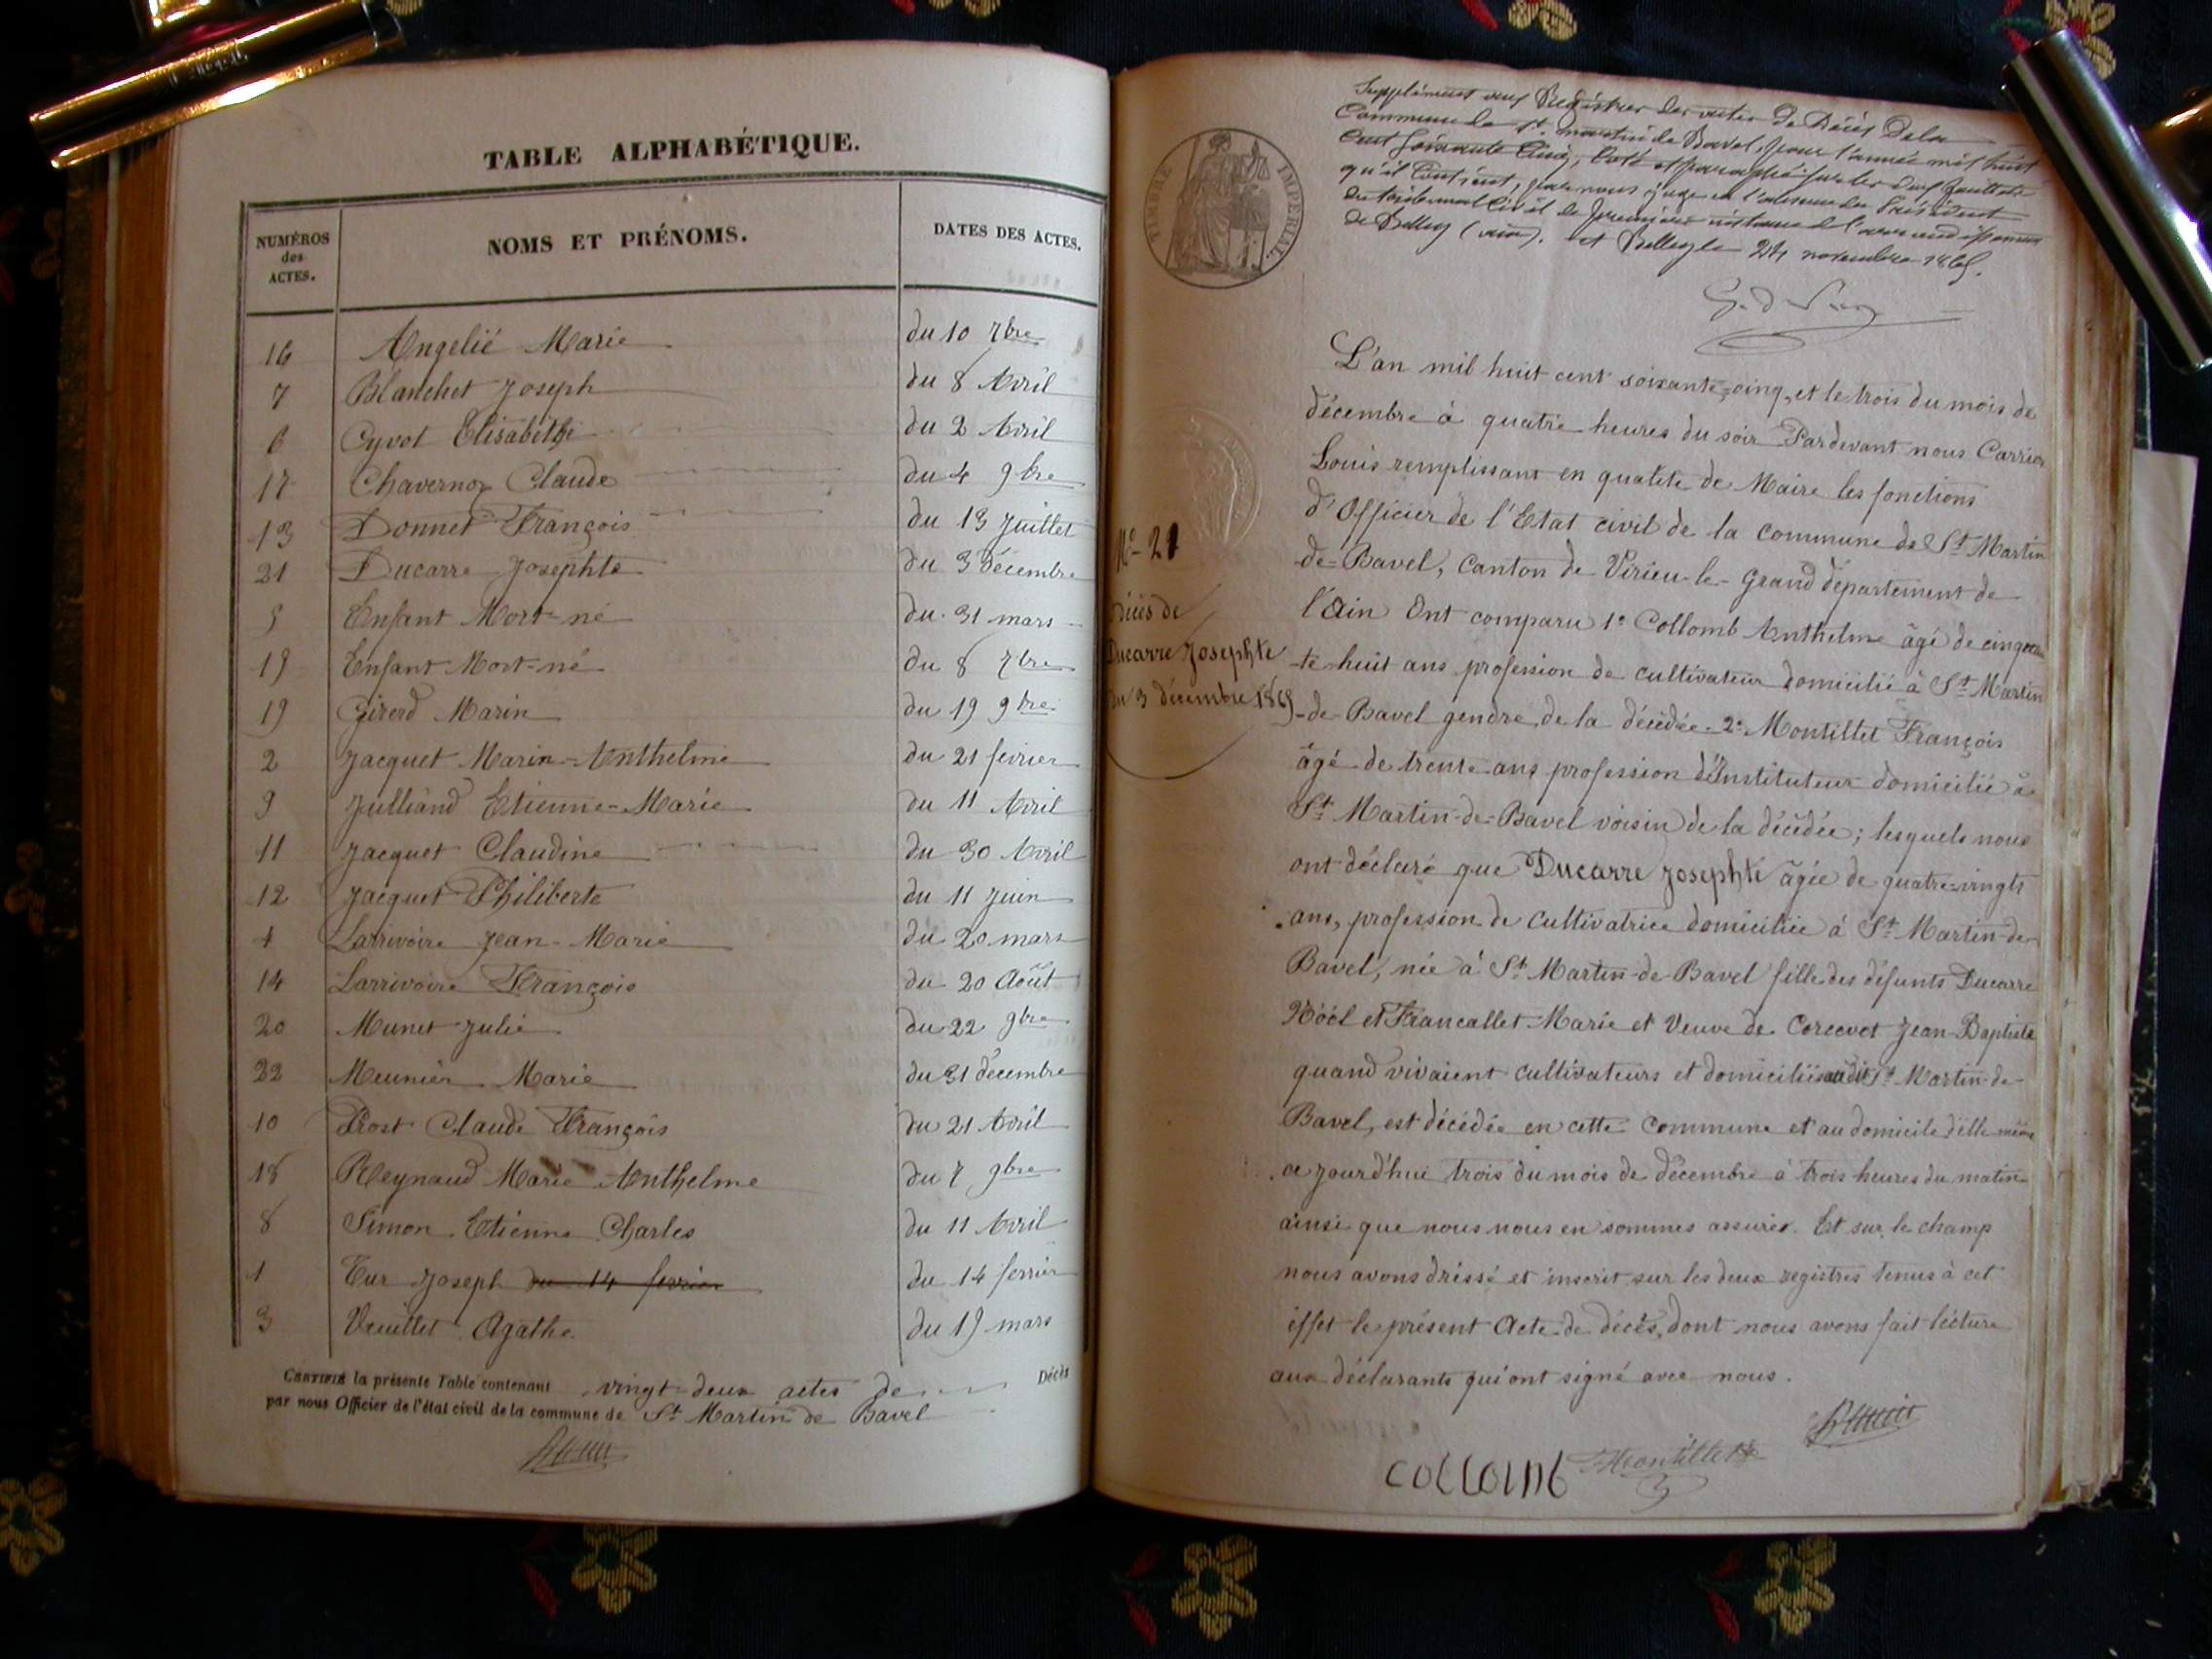 TABLE ALPHABÉTIQUE.
NUMÉROS des ACTES. NOMS ET PRÉNOMS. DATES DES ACTES.
16 Angelié Marie du 10 7bre
7 Blanchet Joseph du 8 Avril
6 Cyvot Elisabethe du 2 Avril
17 Chavernoz Claude du 4 9bre
13 Donnet François du 13 Juillet
21 Ducarre Josephte du 3 Décembre
5 Enfant Mort-né du 31 mars
15 Enfant Mort-né du 8 7bre
19 Girerd Marin du 19 9bre
2 Jacquet Marin-Anthelme du 21 fevrier
9 Julliand Etienne-Marie du 11 Avril
11 Jacquet Claudine du 30 Avril
12 Jacquet Philiberte du 11 Juin
4 Larrivoire Jean-Marie du 20 mars
14 Larrivoire François du 20 Août
20 Munet Julie du 22 9bre
22 Meunier Marie du 31 décembre
10 Prost Claude François du 21 Avril
18 Reynaud Marie Anthelme du 7 9bre
8 Simon Etienne Charles du 11 Avril
1 Tur Joseph du 14 fevrier du 14 fevrier
3 Vuillet Agathe du 19 mars
CERTIFIÉ la présente Table contenant vingt-deux actes de Décès
par nous Officier de l'état civil de la commune de St Martin de Bavel
TIMBRE IMPÉRIAL.
Supplément aux Registres des actes de Décès de la
Commune de St. martin de Bavel, pour l'année mil huit
Cent soixante Cinq, Coté et paraphé sur les deux feuillets
qu'il Contient, par nous juge en l'absence du Président
du tribunal Civil de première instance de l'arrondissement
de Belley (ain). et Belley le 24 novembre 1865.
No 21
Décès de
Ducarre Josephte
du 3 décembre 1865
L'an mil huit cent soixante-cinq, et le trois du mois de
décembre à quatre heures du soir Pardevant nous Carrier
Louis remplissant en qualité de Maire les fonctions
d'Officier de l'Etat civil de la commune de St Martin
-de-Bavel, canton de Virieu-le-Grand département de
l'Ain Ont comparu 1o Collomb Anthelme âgé de cinquan
-te-huit ans profession de cultivateur domicilié à St Martin
-de-Bavel gendre de la décédée. 2o Montillet François
âgé de trente ans profession d'Instituteur domicilié à
St Martin-de-Bavel voisin de la décédée; lesquels nous
ont déclaré que Ducarre Josephte âgée de quatre-vingts
ans, profession de cultivatrice domiciliée à St Martin-de-
Bavel, née à St Martin-de-Bavel fille des défunts Ducarre
Nöel et Francallet Marie et Veuve de Corcevet Jean-Baptiste
quand vivaient cultivateurs et domiciliés audit St Martin-de-
Bavel, est décédée en cette commune et au domicile d'elle même
ce jourd'hui trois du mois de décembre à trois heures du matin
ainsi que nous nous en sommes assurés. Et sur le champ
nous avons dressé et inscrit sur les deux registres tenus à cet
effet le présent Acte de décès, dont nous avons fait lecture
aux déclarants qui ont signé avec nous.
COLLOMB Montillet